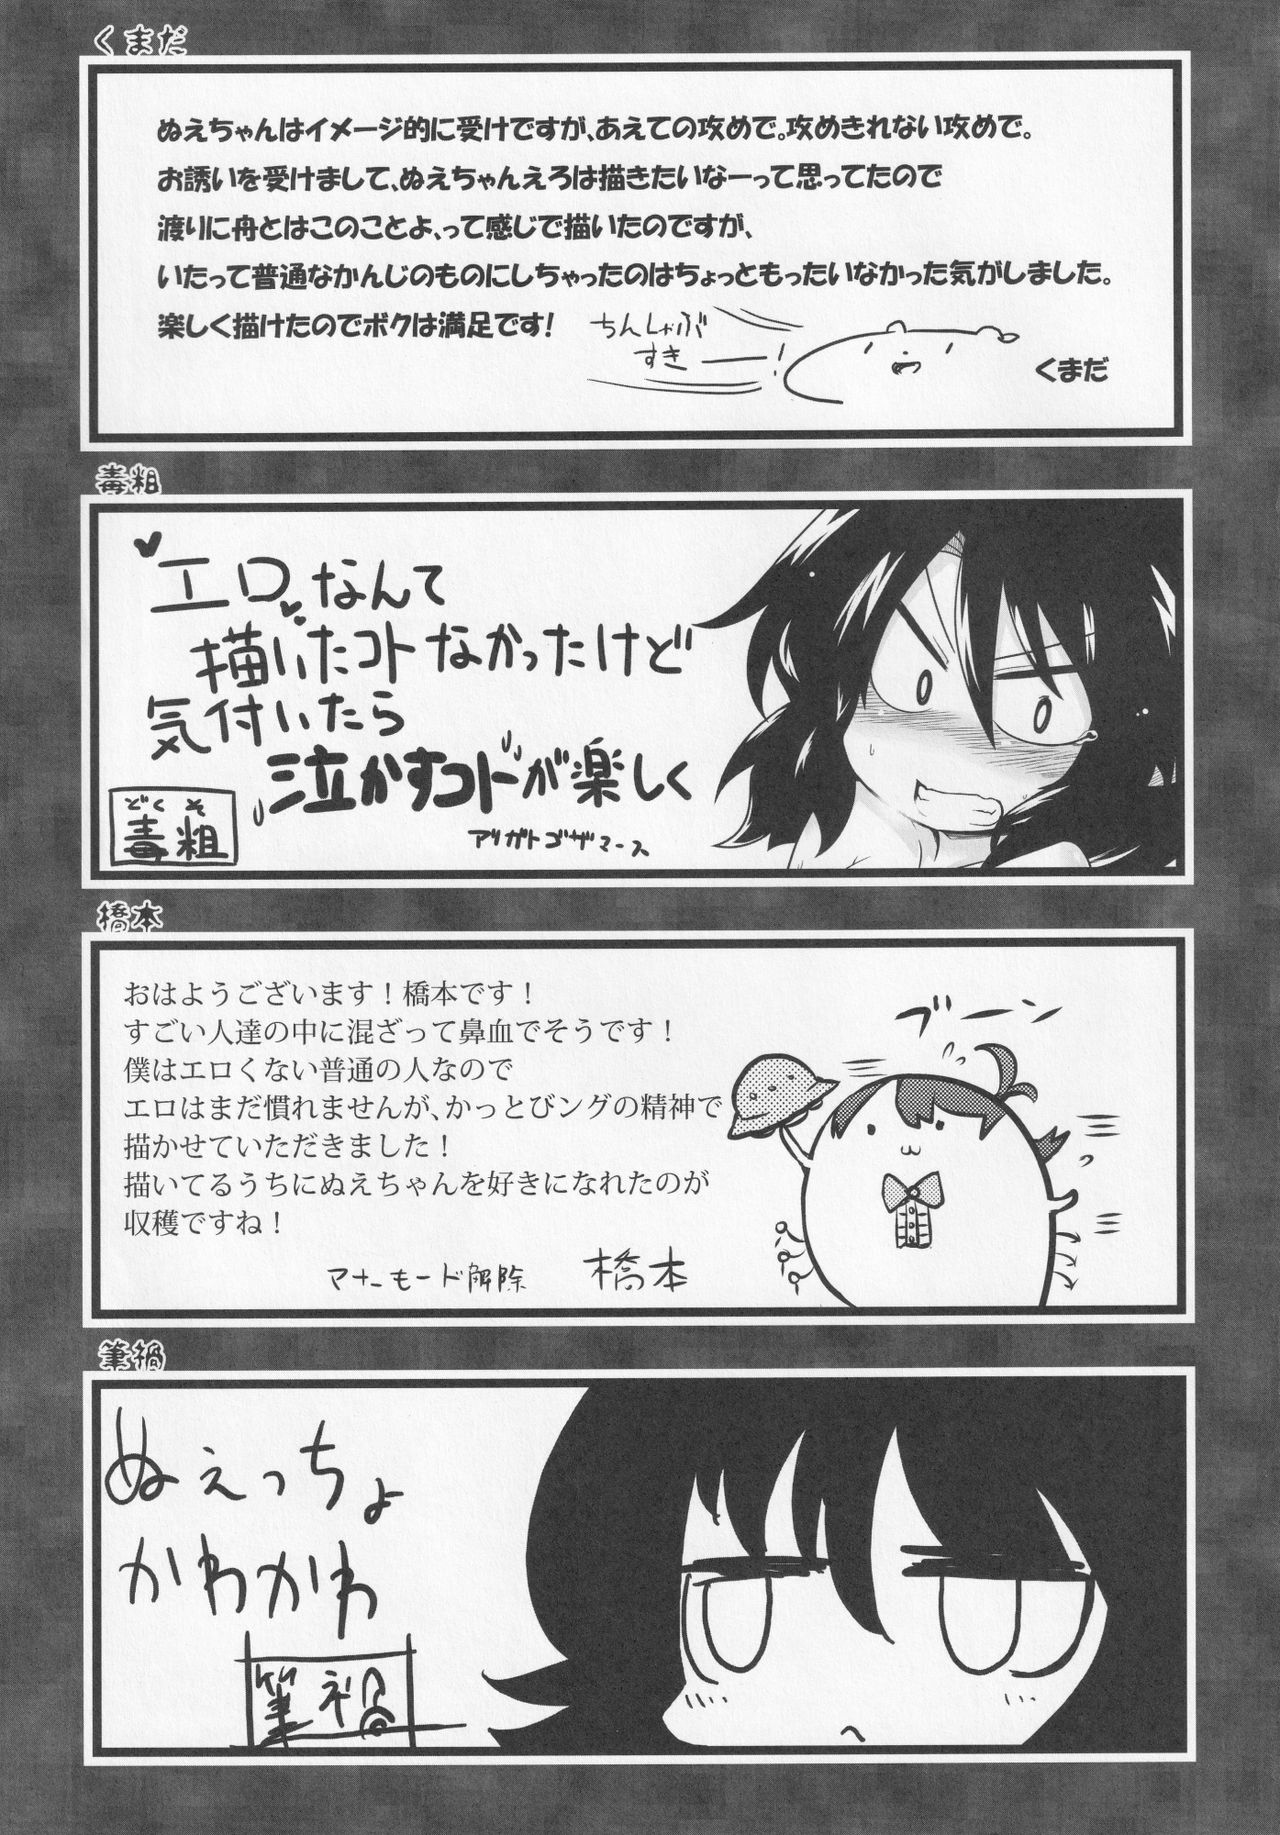 くまだ
ぬえちゃんはイメージ的に受けですが、あえての攻めで。攻めきれない攻めで。
お誘いを受けまして、ぬえちゃんえろは描きたいなーって思ってたので
渡りに舟とはこのことよ、って感じで描いたのですが、
いたって普通なかんじのものにしちゃったのはちょっともったいなかった気がしました。
楽しく描けたのでボクは満足です!
ちんしゃぶ
すき
――!
くまだ
毒粗
エロなんて
描いたコトなかったけど
気付いたら
泣かすコトが楽しく
アリガトゴザマース
どくそ
毒粗
橋本
おはようございます！橋本です！
すごい人達の中に混ざって鼻血でそうです！
僕はエロくない普通の人なので
エロはまだ慣れませんが、かっとびングの精神で
描かせていただきました！
描いてるうちにぬえちゃんを好きになれたのが
収穫ですね！
マナーモード解除
橋本
ブーン
筆禍
ぬえっちょ
かわかわ
筆禍